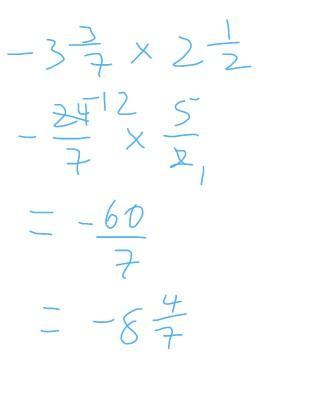 -3 3/7 × 2 1/2
-24/7 -12 × 5/2 1
= -60/7
= -8 4/7